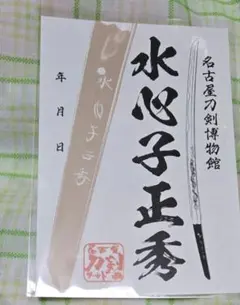 名古屋刀剣博物館
水心子正秀
水心子正秀
年月日